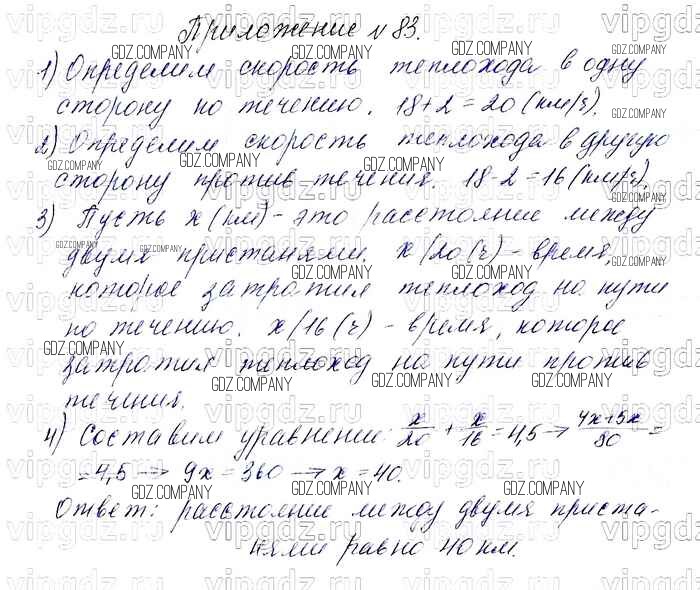 Приложение № 83.
1) Определим скорость теплохода в одну
сторону по течению. 18+2=20 (км/ч).
2) Определим скорость теплохода в другую
сторону против течения. 18-2=16 (км/ч).
3) Пусть x (км) - это расстояние между
двумя пристанями. x/20 (ч) - время,
которое затратил теплоход на пути
по течению. x/16 (ч) - время, которое
затратил теплоход на пути против
течения.
4) Составим уравнение: x/20 + x/16 = 4,5 → (4x+5x)/80 =
= 4,5 → 9x = 360 → x = 40.
Ответ: расстояние между двумя приста-
нями равно 40 км.